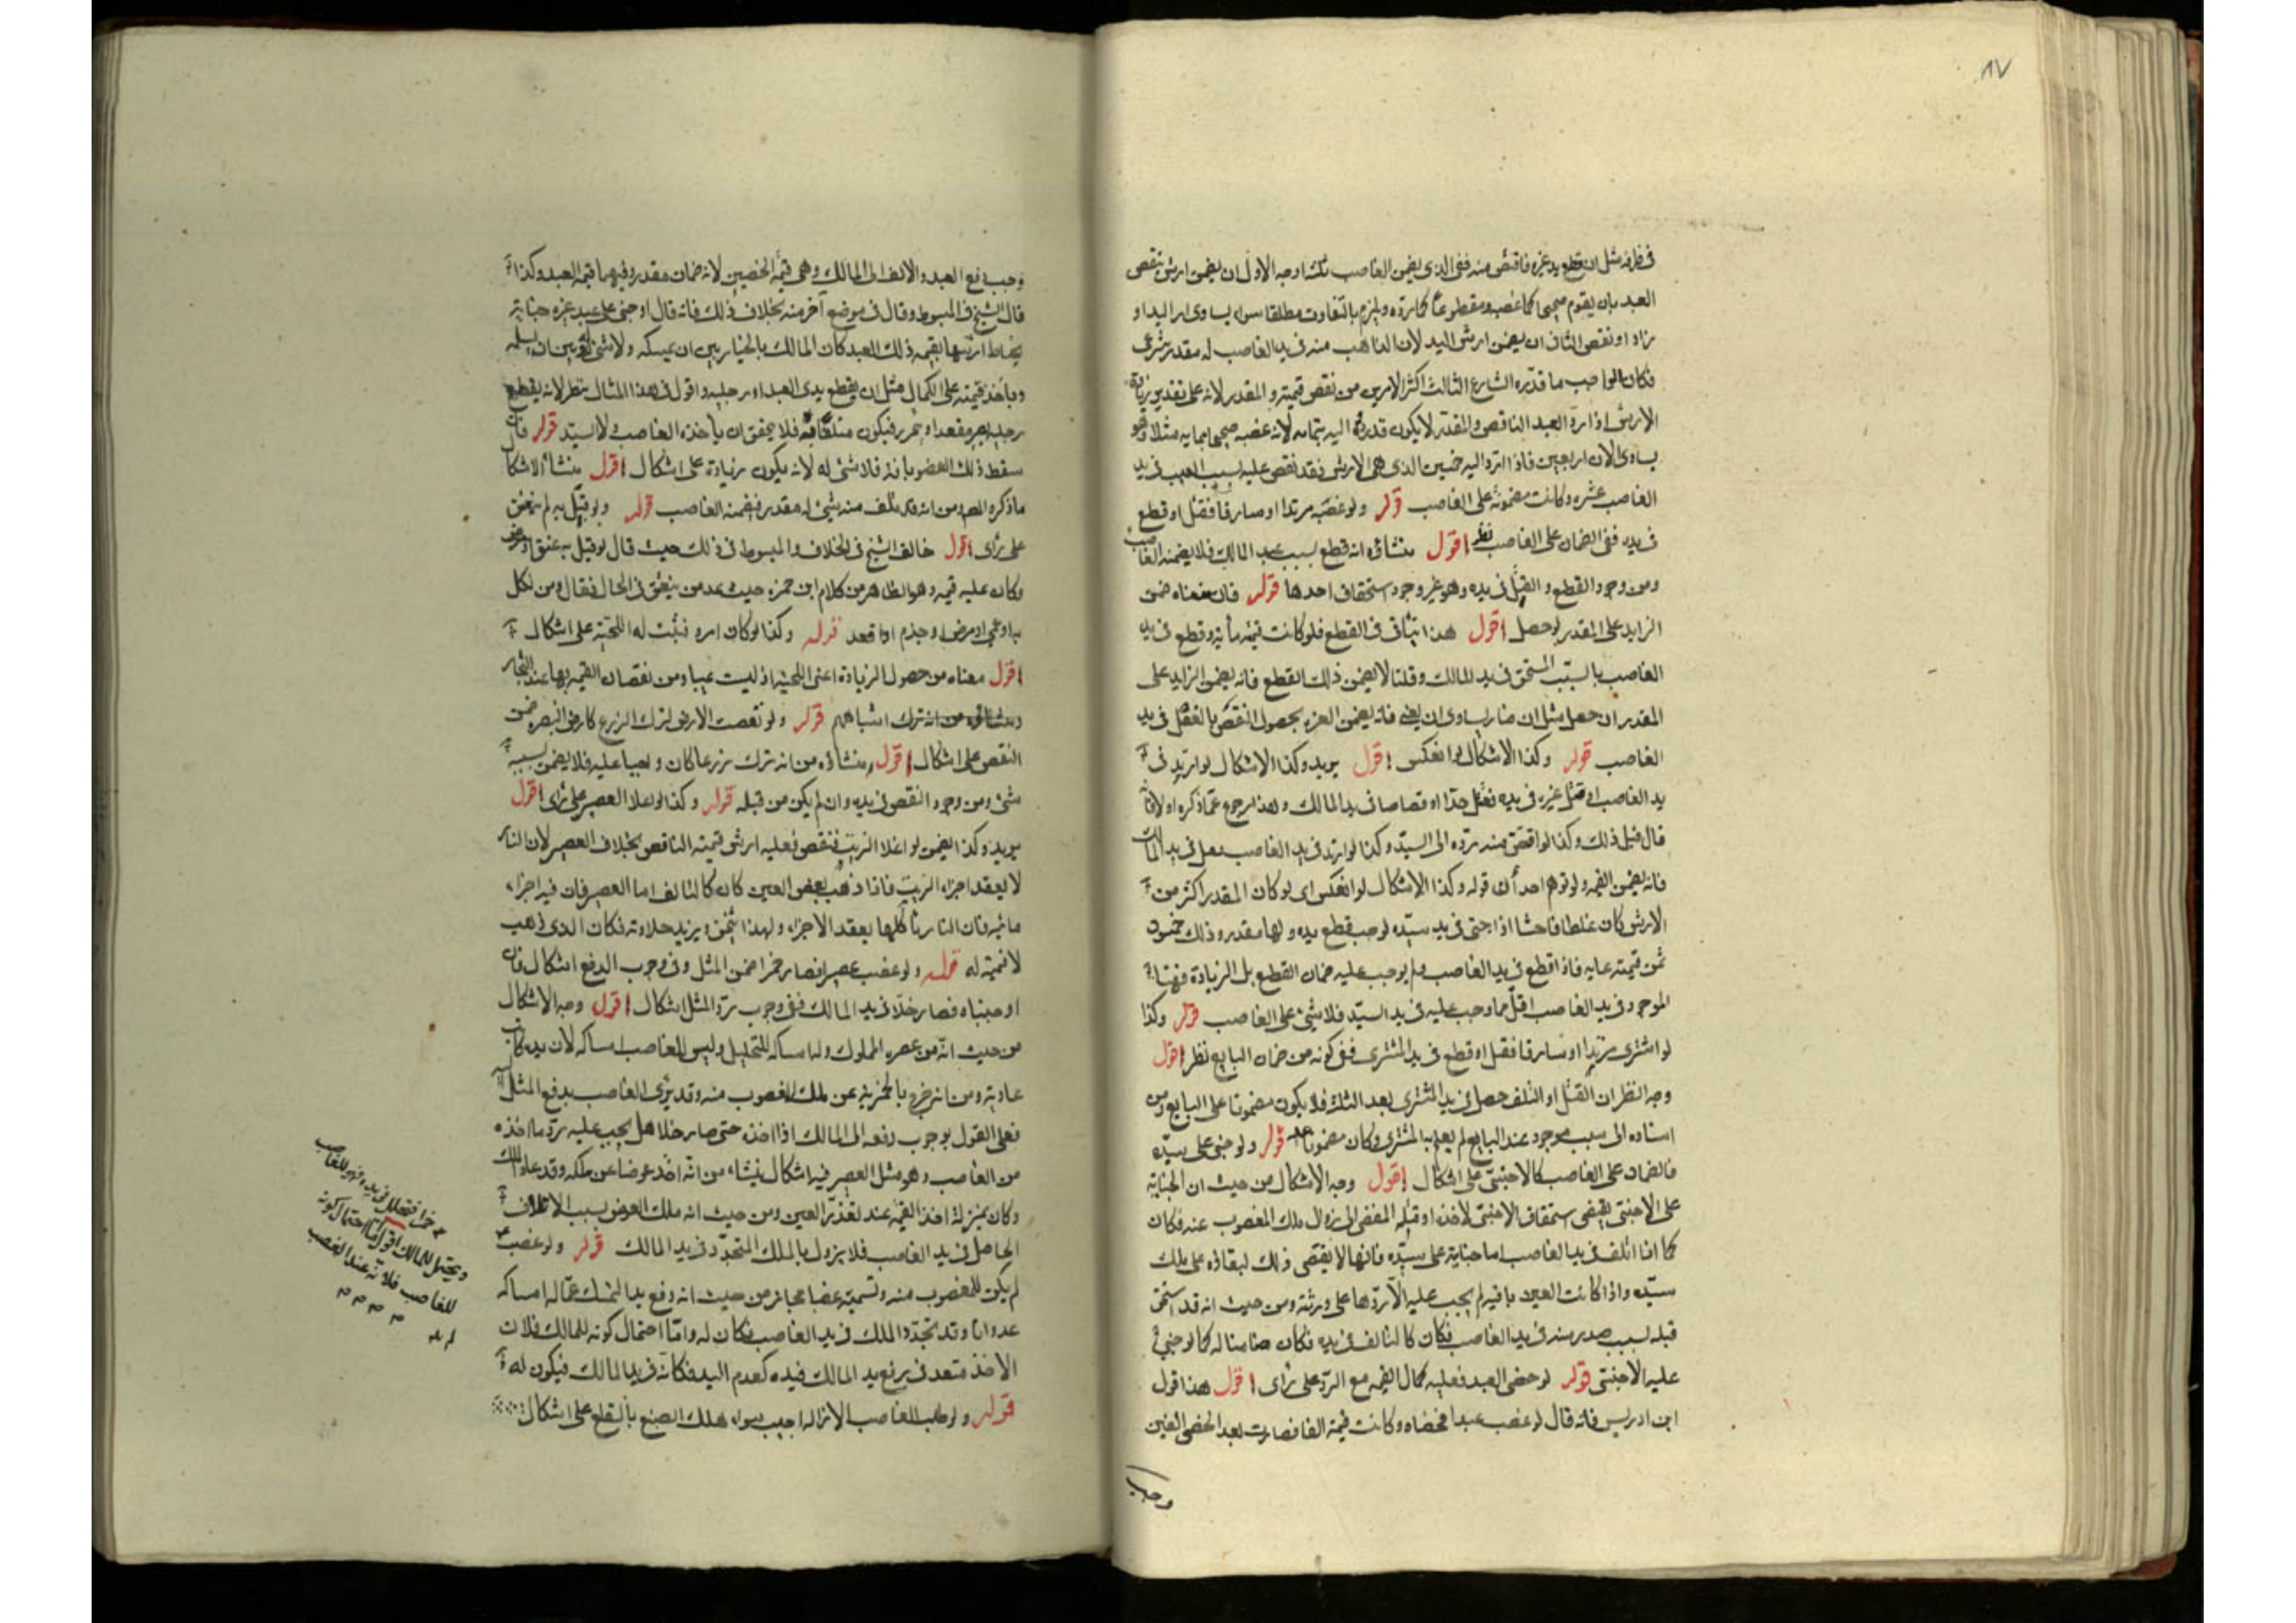 ٨٧
في طرفه مثل ان قطع يد غيره فاقتص منه ففي الذي يضمن الغاصب ثلثه اوجه الاول ان يضمن ارش نقص
العبد بان يقوم صحيحا كما غصب ومقطوعا كما رده ويلزم بالتفاوت مطلقا سواء يساوي ارش اليد او
زاد او نقص الثاني ان يضمن ارش اليد لان الذاهب منه في يد الغاصب له مقدر شرعي
فكان الواجب ما قدره الشارع الثالث اكثر الامرين من نقص قيمته و المقدر لانه على تقدير زيادة
الارش اذا رد العبد الناقص والمقدر لا يكون قد رده اليه بتمامه لانه غصبه صحيحا بمايه مثلا وهو
يساوي الان اربعين فاذا رد اليه خمسين الذي هي الارش فقد نقص عليه بسبب العيب في يد
الغاصب عشره وكانت مضمونة على الغاصب قوله ولو غصبه مرتدا او سارقا فقتل او قطع
في يده ففي الضمان على الغاصب نظر اقول منشاؤه انه قطع بسبب عند المالك فلا يضمنه الغاصب
ومن وجود القطع و القتل في يده وهو غير وجود استحقاق احدها قوله فان ضمناه ضمن
الزايد على المقدر لو حصل اقول هذا يتاتى في القطع فلو كانت قيمته مأية وقطع في يد
الغاصب بالسبب المستحق في يد المالك وقلنا لا يضمن ذلك القطع فانه يضمن الزايد على
المقدر ان حصل مثل ان صار يساوي اربعين فانه يضمن العشرة بحصول النقص بالفعل في يد
الغاصب قوله وكذا الاشكال لو انعكس اقول يريد وكذا الاشكال لو ارتد في
يد الغاصب او قتل غيره في يده فقتل حدا او قصاصا في يد المالك وهذا رجوع عما ذكره اولا فانه
قال قبل ذلك وكذا لو اقتص منه برده الى السيد وكذا لو ارتد في يد الغاصب فقتل في يد المالك
فانه يضمن القيمه ولو توهم احد أن قوله وكذا الاشكال لو انعكس اي لو كان المقدر اكثر من
الارش كان غلطا فاحشا اذا جنى في يد سيده لوجب قطع يده ولها مقدر وذلك خمسون
ثمن قيمته مايه فاذا قطع في يد الغاصب ولم يوجب عليه ضمان القطع بل الزيادة فهنا
الموجود في يد الغاصب اقل مما وجب عليه في يد السيد فلا شيء على الغاصب قوله وكذا
لو اشترى مرتدا او سارقا فقتل او قطع في يد المشتري ففي كونه من ضمان البايع نظر اقول
وجه النظر ان القتل او التلف حصل في يد المشتري بعد الثلث فلا يكون مضمونا على البايع ومن
اسناده الى سبب موجود عند البايع لم يعلم به المشتري وكان مضمونا عليه قوله ولو جنى على سيده
فالضمان على الغاصب كالاجنبي على اشكال اقول وجه الاشكال من حيث ان الجناية
على الاجنبي يقتضي استحقاق الاجنبي لاخذه او قتله المفضي الى زوال ملك المغصوب عنه فكان
كما اذا اتلف في يد الغاصب اما جنايته على سيده فانها لا يقتضي ذلك لبقاؤه على ملك
سيده واذا كانت العين باقية لم يجب عليه الا ردها على ورثته ومن حيث انه قد استحق
قبله بسبب صدر منه في يد الغاصب فكان كالتالف في يده فكان ضامنا له كما لو جنى
على الاجنبي قوله لو خصى العبد فعليه كمال القيمه مع الرد على رأى اقول هذا قول
ابن ادريس فانه قال لو غصب عبدا فخصاه وكانت قيمة الفا فصارت بعد الخصى الفين
وجب
وجب دفع العبد والالف الى المالك وهي قيمة الخصيين لانه ضمان مقدر وفيهما قيمة العبد وكذا
قال الشيخ في المبسوط وقال في موضع آخر منه بخلاف ذلك فانه قال لو جنى على عبد غيره جناية
يحاط ارشها بقيمه ذلك العبد كان المالك بالخيار بين ان يمسكه ولا شئ له وبين ان يسلمه
وياخذ قيمته على الكمال مثل ان يقطع يدي العبد او رجليه واقول في هذا المثال نظر لانه بقطع
رجليه يصير مقعدا فيكون فلا يتحقق ان ياخذه الغاصب ولا السيد قوله فان
سقط ذلك العضو بافة فلا شئ له لانه يكون زيادة على اشكال اقول منشأ الاشكال
ماذكره المصنف ومن انه قد تلف منه شئ له مقدر فيضمنه الغاصب قوله ولو مثل به لم ينعتق
على رأى اقول خالف الشيخ في الخلاف والمبسوط في ذلك حيث قال لو مثل به عتق
وكان عليه قيمته وهو الظاهر من كلام ابن حمزه حيث عد من ينعتق في الحال فقال ومن نكل
به او عمي او مرض او جذم او اقعد قوله وكذا لو كان امرد فنبتت له اللحية على اشكال
اقول معناه من حصول الزيادة اعني اللحية اذ ليست عيبا ومن نقصان القيمه بها عند التجار
قوله ولو نقصت الارض لترك الزرع كارض البصره ضمن
النقص على اشكال اقول منشاؤه من انه ترك زرعا كان واجبا عليه فلا يضمن بسببه
شئ ومن وجود النقص في يده وان لم يكن من قبله قوله وكذا لو اغلا العصير على رأى اقول
يريد وكذا يضمن لو اغلا الزيت فنقص فعليه ارش قيمته الناقص بخلاف العصير لان النار
لا يعقد اجزاء الزيت فاذا ذهب بعض العين كان كالتالف اما العصير فان فيه اجزاء
مائية فان النار تأكلها بعقد الاجزاء ولهذا يثخن ويزيد حلاوته فكان الذي ذهب
لا قيمة له قوله ولو غصب عصيرا فصار خمرا ضمن المثل وفي وجوب الدفع اشكال فان
اوجبناه فصار خلا في يد المالك ففي وجوب رد المثل اشكال اقول وجه الاشكال
من حيث انه من عصيره المملوك وله امساكه للتخليل وليس للغاصب امساكه لان يده كانت
عادية ومن انه خرج بالخمرية عن ملك المغصوب منه وقد يؤدى الغاصب بدفع المثل
فعلى القول بوجوب دفعه الى المالك اذا اخذه حتى صار خلا هل يجب عليه رد ما اخذه
من الغاصب وهو مثل العصير فيه اشكال ينشاء من انه اخذ عوضا عن ملكه وقد عاد الملك
وكان بمنزلة اخذ القيمة عند تعذر العين ومن حيث انه ملك العوض بسبب الاتلاف
الحاصل في يد الغاصب فلا يزول بالملك المتجدد في يد المالك قوله ولو غصب
لم يكن للمغصوب منه وتسميته غصبا مجاز من حيث انه رفع يد المتمسك عما له امساكه
عدوانا وقد تجدد الملك في يد الغاصب فكان له واما احتمال كونه للمالك فلان
الاخذ متعد في رفع يد المالك فيده كعدم اليد فكانه في يد المالك فيكون له
قوله ولو طلب الغاصب الازالة اجيب سواء هلك الصبغ بالقلع على اشكال
خمرا فتخلل في يده فهو للغاصب
ويحتمل للمالك اقول اما احتمال كونه
للغاصب فلانه عند الغصب